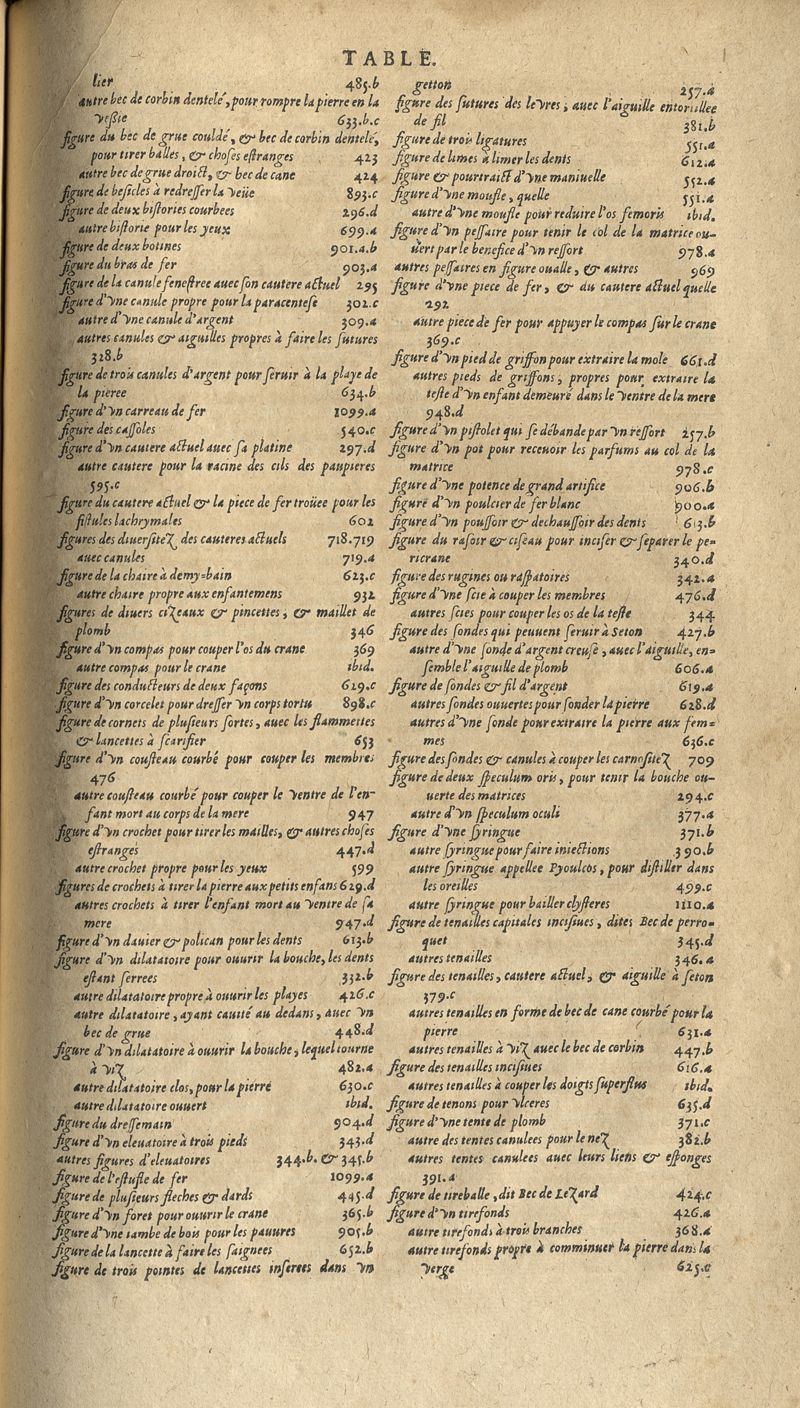 TABLE.
lier 485.b
autre bec de corbin dentelé, pour rompre la pierre en la
veſsie 633.b.c
figure du bec de grue couldé, & bec de corbin dentelé,
pour tirer balles, & choſes eſtranges 423
autre bec de grue droict, & bec de cane 424
figure de beſicles à redreſſer la veüe 893.c
figure de deux biſtories courbees 296.d
autre biſtorie pour les yeux 699.a
figure de deux botines 901.a.b
figure du bras de fer 903.a
figure de la canule feneſtree auec ſon cautere actuel 295
figure d'vne canule propre pour la paracenteſe 302.c
autre d'vne canule d'argent 309.a
autres canules & aiguilles propres à faire les ſutures
328.b
figure de trois canules d'argent pour ſeruir à la playe de
la pieree 634.b
figure d'vn carreau de fer 1099.a
figure des caſſoles 540.c
figure d'vn cautere actuel auec ſa platine 297.d
autre cautere pour la racine des cils des paupieres
595.c
figure du cautere actuel & la piece de fer troüee pour les
fiſtules lachrymales 602
figures des diuerſitez des cauteres actuels 718.719
auec canules 719.a
figure de la chaire à demy-bain 623.c
autre chaire propre aux enfantemens 932
figures de diuers cizeaux & pincettes, & maillet de
plomb 346
figure d'vn compas pour couper l'os du crane 369
autre compas pour le crane ibid.
figure des conducteurs de deux façons 629.c
figure d'vn corcelet pour dreſſer vn corps tortu 898.c
figure de cornets de pluſieurs ſortes, auec les flammettes
& lancettes à ſcarifier 653
figure d'vn couſteau courbé pour couper les membres
476
autre couſteau courbé pour couper le ventre de l'en-
fant mort au corps de la mere 947
figure d'vn crochet pour tirer les mailles, & autres choſes
eſtranges 447.d
autre crochet propre pour les yeux 599
figures de crochets à tirer la pierre aux petits enfans 629.d
autres crochets à tirer l'enfant mort au ventre de ſa
mere 947.d
figure d'vn dauier & polican pour les dents 613.b
figure d'vn dilatatoire pour ouurir la bouche, les dents
eſtant ſerrees 332.b
autre dilatatoire propre à ouurir les playes 426.c
autre dilatatoire, ayant cauité au dedans, auec vn
bec de grue 448.d
figure d'vn dilatatoire à ouurir la bouche, lequel tourne
à viz 482.a
autre dilatatoire clos, pour la pierre 630.c
autre dilatatoire ouuert ibid.
figure du dreſſemain 904.d
figure d'vn eleuatoire à trois pieds 343.d
autres figures d'eleuatoires 344.b. & 345.b
figure de l'eſtuſle de fer 1099.a
figure de pluſieurs fleches & dards 445.d
figure d'vn foret pour ouurir le crane 365.b
figure d'vne iambe de bois pour les pauures 905.b
figure de la lancette à faire les ſaignees 652.b
figure de trois pointes de lancettes inſerees dans vn
getton 257.a
figure des ſutures des leures, auec l'aiguille entortillee
de fil 381.b
figure de trois ligatures 551.a
figure de limes à limer les dents 612.a
figure & pourtraict d'vne maniuelle 552.a
figure d'vne moufle, quelle 551.a
autre d'vne moufle pour reduire l'os femoris ibid.
figure d'vn peſſaire pour tenir le col de la matrice ou-
uert par le benefice d'vn reſſort 978.a
autres peſſaires en figure oualle, & autres 969
figure d'vne piece de fer, & du cautere actuel quelle
292
autre piece de fer pour appuyer le compas ſur le crane
369.c
figure d'vn pied de griffon pour extraire la mole 661.d
autres pieds de griffons, propres pour extraire la
teſte d'vn enfant demeuré dans le ventre de la mere
948.d
figure d'vn piſtolet qui ſe débande par vn reſſort 257.b
figure d'vn pot pour receuoir les parfums au col de la
matrice 978.c
figure d'vne potence de grand artifice 906.b
figure d'vn poulcier de fer blanc 900.a
figure d'vn pouſſoir & dechauſſoir des dents 613.b
figure du raſoir & ciſeau pour inciſer & ſeparer le pe-
ricrane 340.d
figure des rugines ou raſpatoires 342.a
figure d'vne ſcie à couper les membres 476.d
autres ſcies pour couper les os de la teſte 344
figure des ſondes qui peuuent ſeruir à Seton 427.b
autre d'vne ſonde d'argent creuſe, auec l'aiguille, en-
ſemble l'aiguille de plomb 606.a
figure de ſondes & fil d'argent 619.a
autres ſondes ouuertes pour ſonder la pierre 628.d
autres d'vne ſonde pour extraire la pierre aux fem-
mes 636.c
figure des ſondes & canules à couper les carnoſitez 709
figure de deux ſpeculum oris, pour tenir la bouche ou-
uerte des matrices 294.c
autre d'vn ſpeculum oculi 377.a
figure d'vne ſyringue 371.b
autre ſyringue pour faire iniections 390.b
autre ſyringue appellee Pyoulcos, pour diſtiller dans
les oreilles 499.c
autre ſyringue pour bailler clyſteres 1110.a
figure de tenailles capitales inciſiues, dites Bec de perro-
quet 345.d
autres tenailles 346.a
figure des tenailles, cautere actuel, & aiguille à ſeton
379.c
autres tenailles en forme de bec de cane courbé pour la
pierre 631.a
autres tenailles à viz auec le bec de corbin 447.b
figure des tenailles inciſiues 616.a
autres tenailles à couper les doigts ſuperflus ibid.
figure de tenons pour vlceres 635.d
figure d'vne tente de plomb 371.c
autre des tentes canulees pour le nez 382.b
autres tentes canulees auec leurs liens & eſponges
391.a
figure de tireballe, dit Bec de Lezard 424.c
figure d'vn tirefonds 426.a
autre tirefonds à trois branches 368.a
autre tirefonds propre à comminuer la pierre dans la
verge 625.c